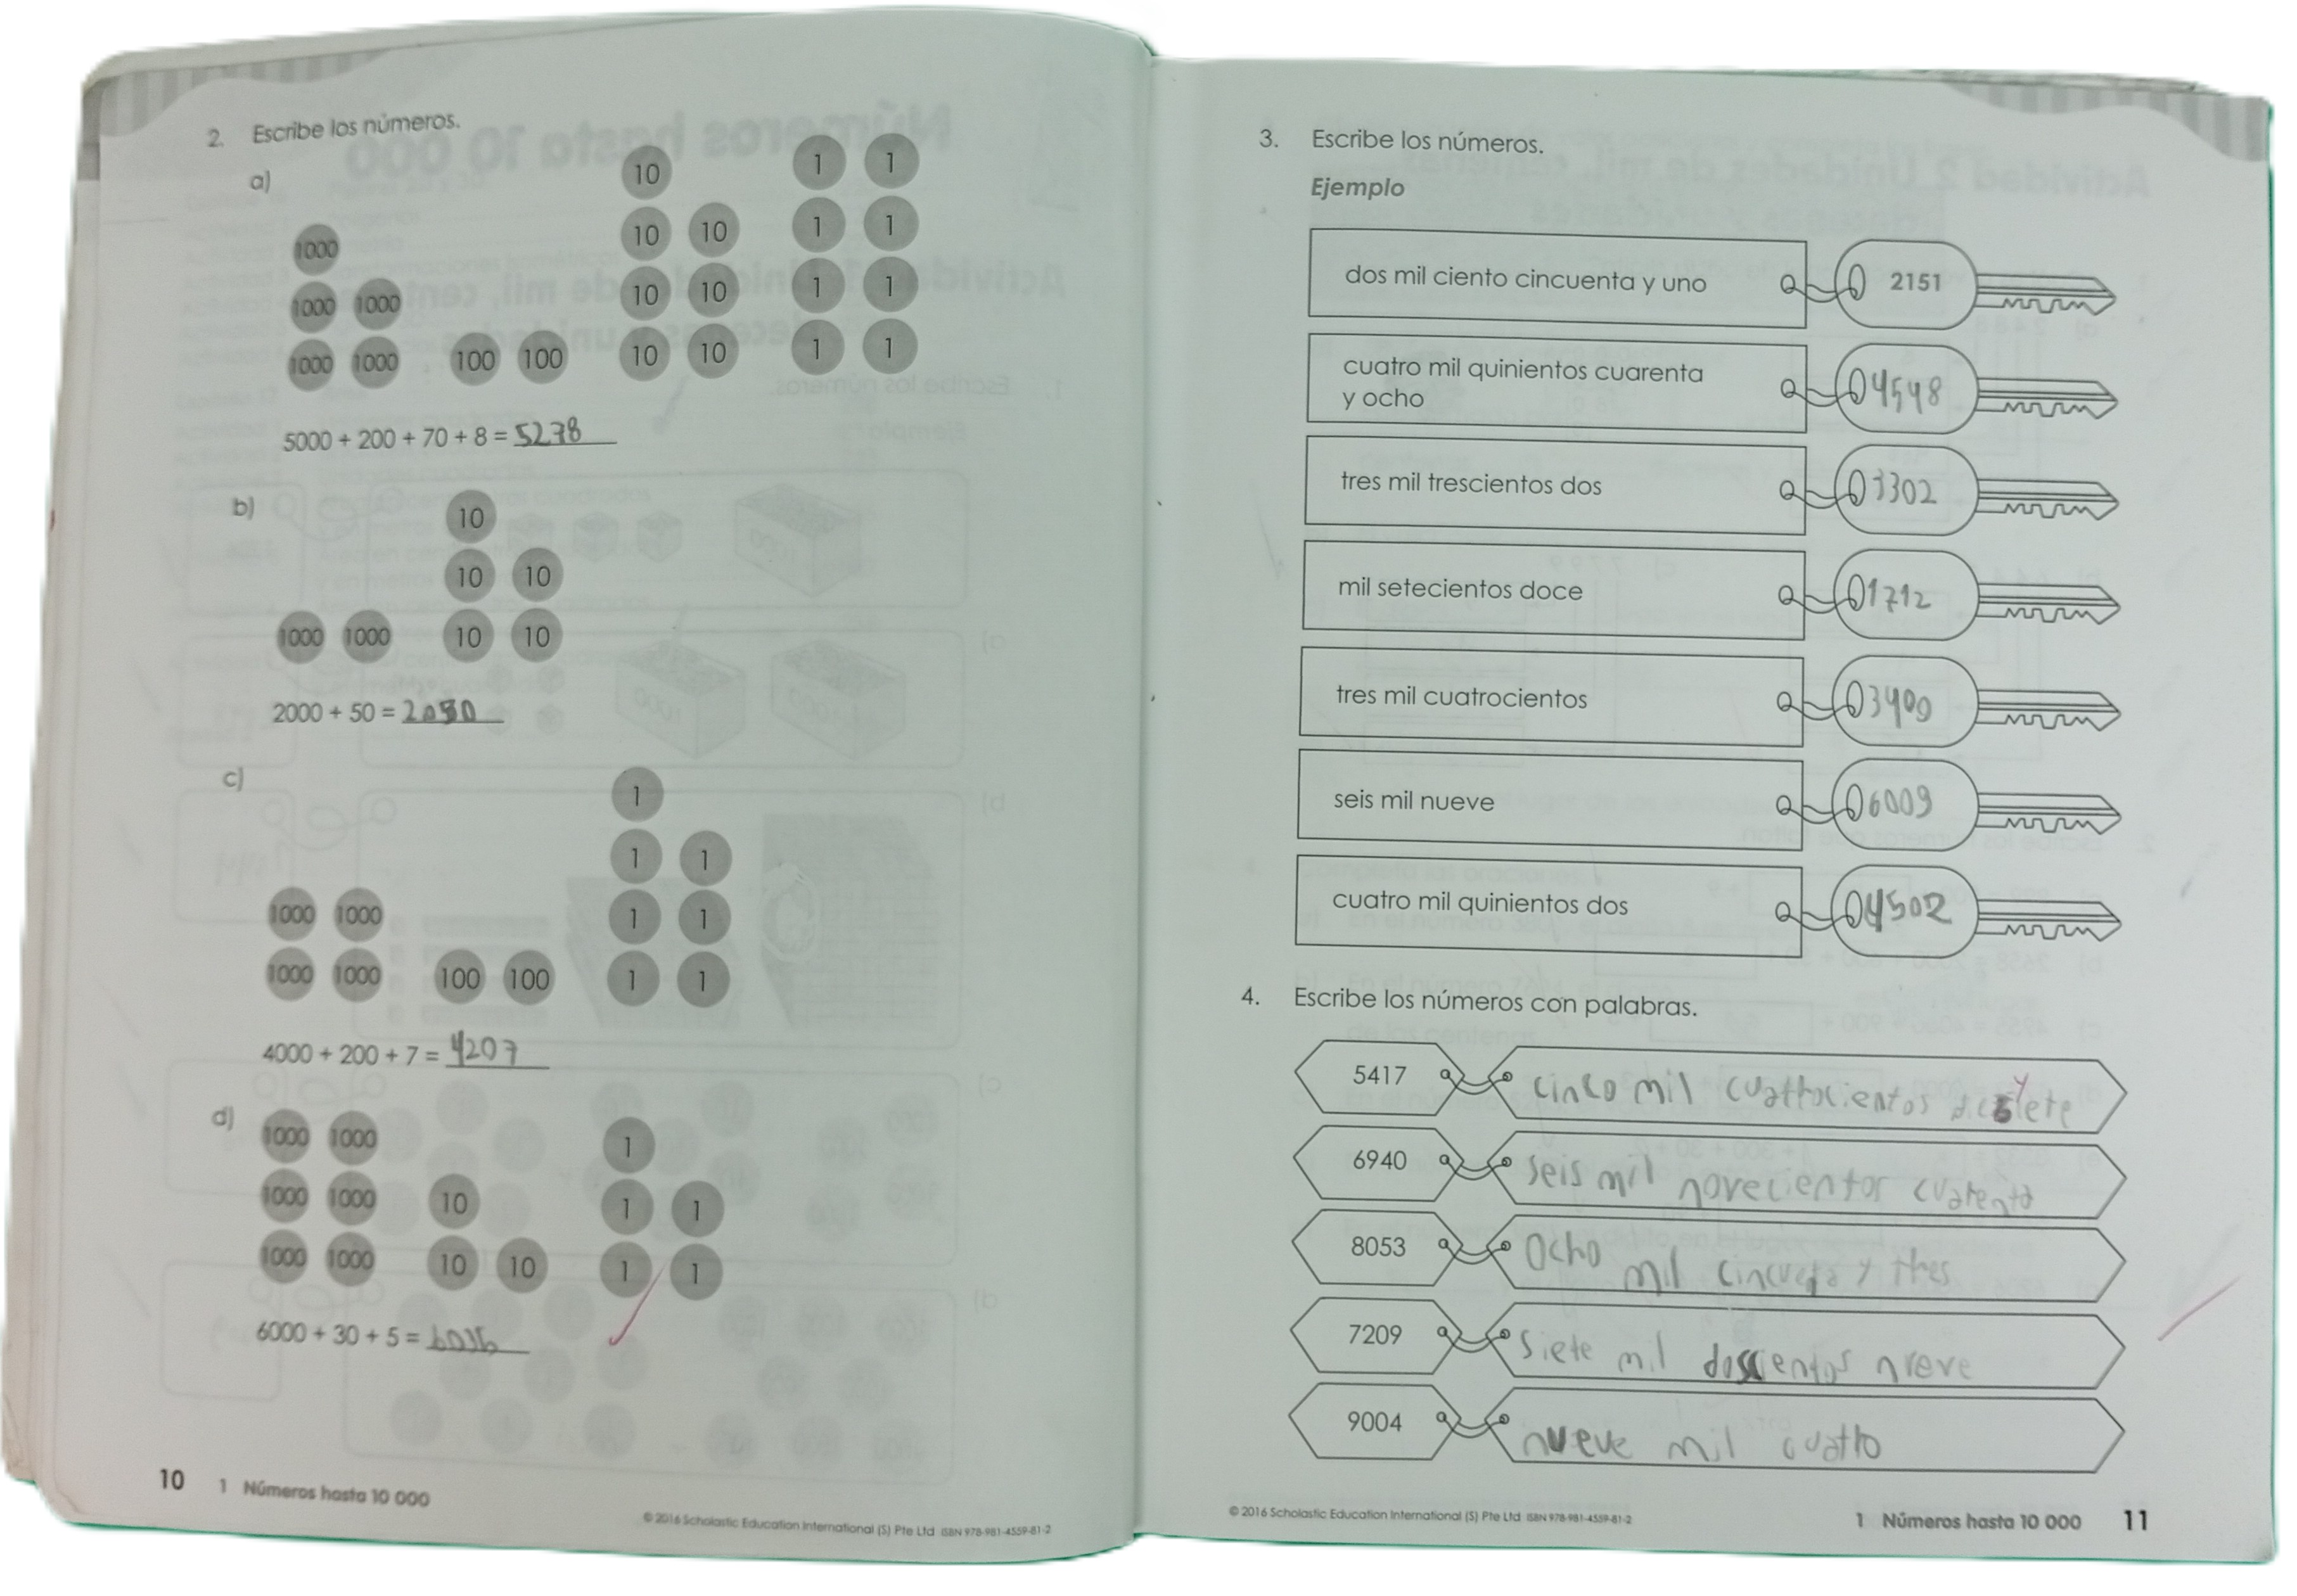 2. Escribe los números.
a)
10 1 1
10 10 1 1
1000
1000 1000 10 10 1 1
1000 1000 100 100 10 10 1 1
5000 + 200 + 70 + 8 = 5278
b)
10
10 10
1000 1000 10 10
2000 + 50 = 2050
c)
1
1 1
1000 1000 1 1
1000 1000 100 100 1 1
4000 + 200 + 7 = 4207
d)
1000 1000 1
1000 1000 10 1 1
1000 1000 10 10 1 1
6000 + 30 + 5 =
10 1 Números hasta 10 000
© 2016 Scholastic Education International (S) Pte Ltd ISBN 978-981-4559-81-2
3. Escribe los números.
Ejemplo
dos mil ciento cincuenta y uno 2151
cuatro mil quinientos cuarenta
y ocho 4548
tres mil trescientos dos 3302
mil setecientos doce 1712
tres mil cuatrocientos 3400
seis mil nueve 6009
cuatro mil quinientos dos 4502
4. Escribe los números con palabras.
5417 cinco mil cuatrocientos
6940 seis mil novecientos cuarenta
8053 Ocho mil y tres
7209 siete mil nueve
9004 nueve mil cuatro
© 2016 Scholastic Education International (S) Pte Ltd ISBN 978-981-4559-81-2
1 Números hasta 10 000 11